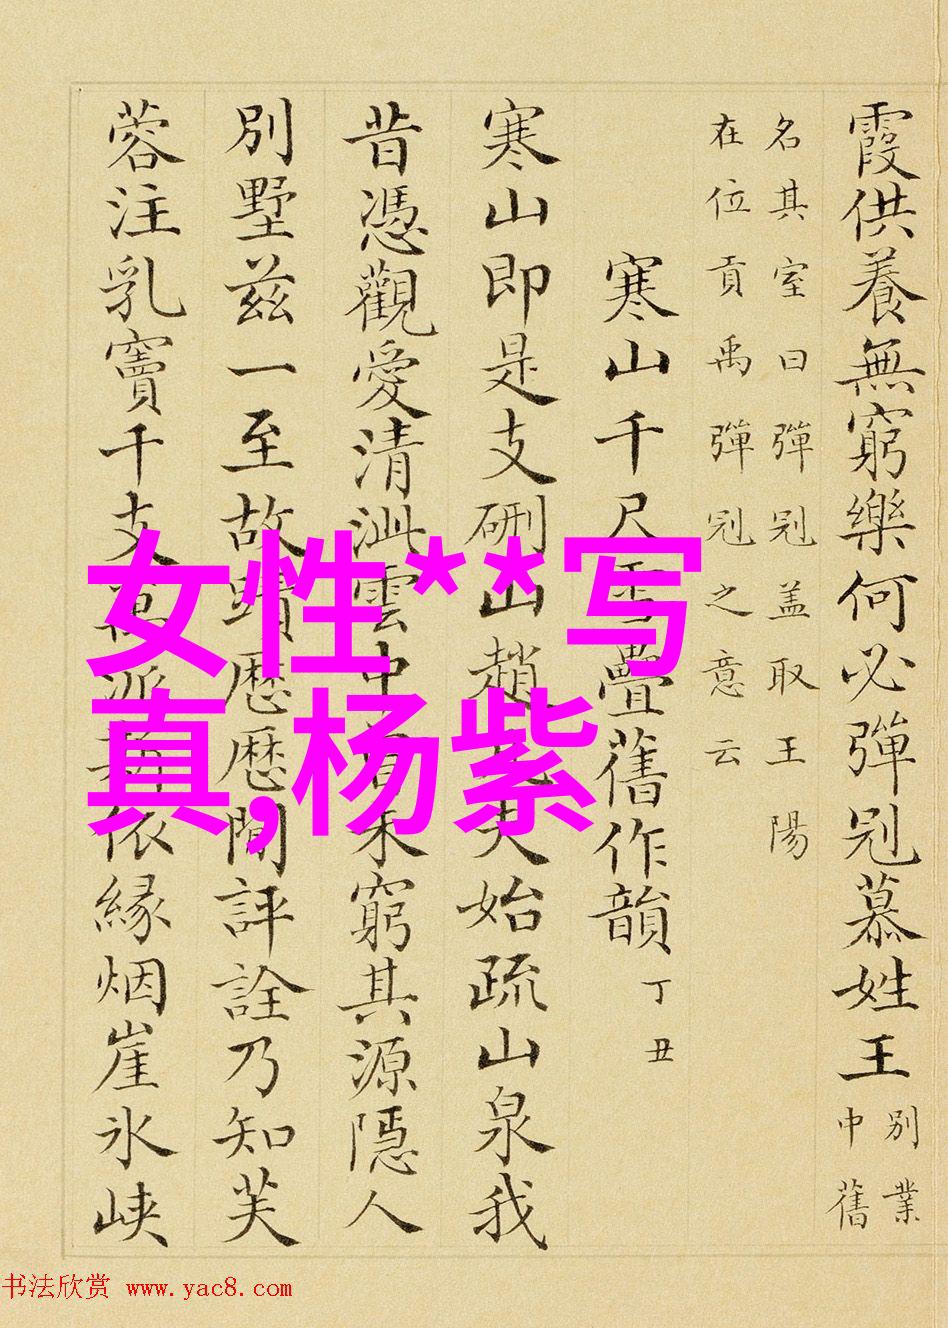 霞供養無窮樂何必彈冠慕姓王
別業
中舊
名其室曰彈冠盖取王陽
在位貢禹彈冠之意云
寒山千尺雪疊舊作韻
丁丑
寒山即是支硎山趙凡夫始疏山泉我
昔憑觀愛清泚雲中未窮其源隱人
別墅茲一至故蹟歷歷閒評詮乃知芙
蓉注乳竇千支萬派依緣烟崖氷峽
女性**写
真,杨紫
书法欣赏 www.yac8.com